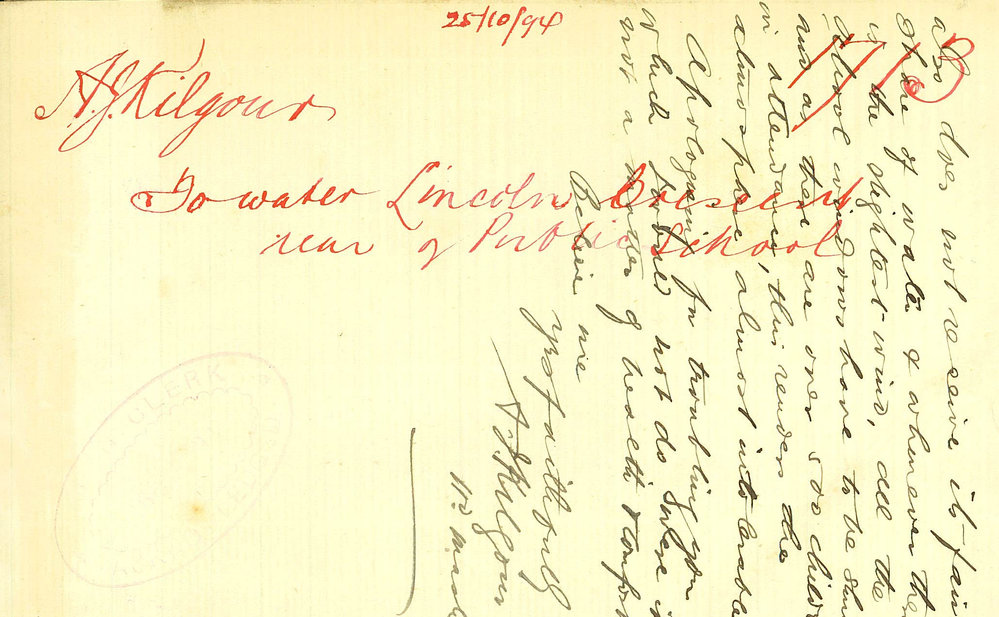 25/10/94
A.J. Kilgour
To water Lincoln Crescent
rear of Public School
also does not receive its fair
share of water & whenever there
is the slightest wind, all the
School windows have to be shu
and as there are over 500 childr
in attendance, this renders the
atmosphere almost intolerable
Apologising for troubling you
which I would not do were it
not a matter of health & comfor
Believe me
yrs faithfully
A.J. Kilgour
CLERK